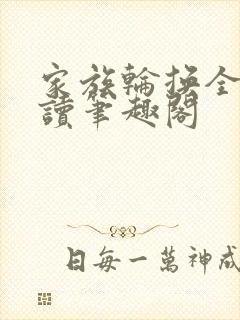 家族輪換全
讀筆趣閣
日每一萬神成